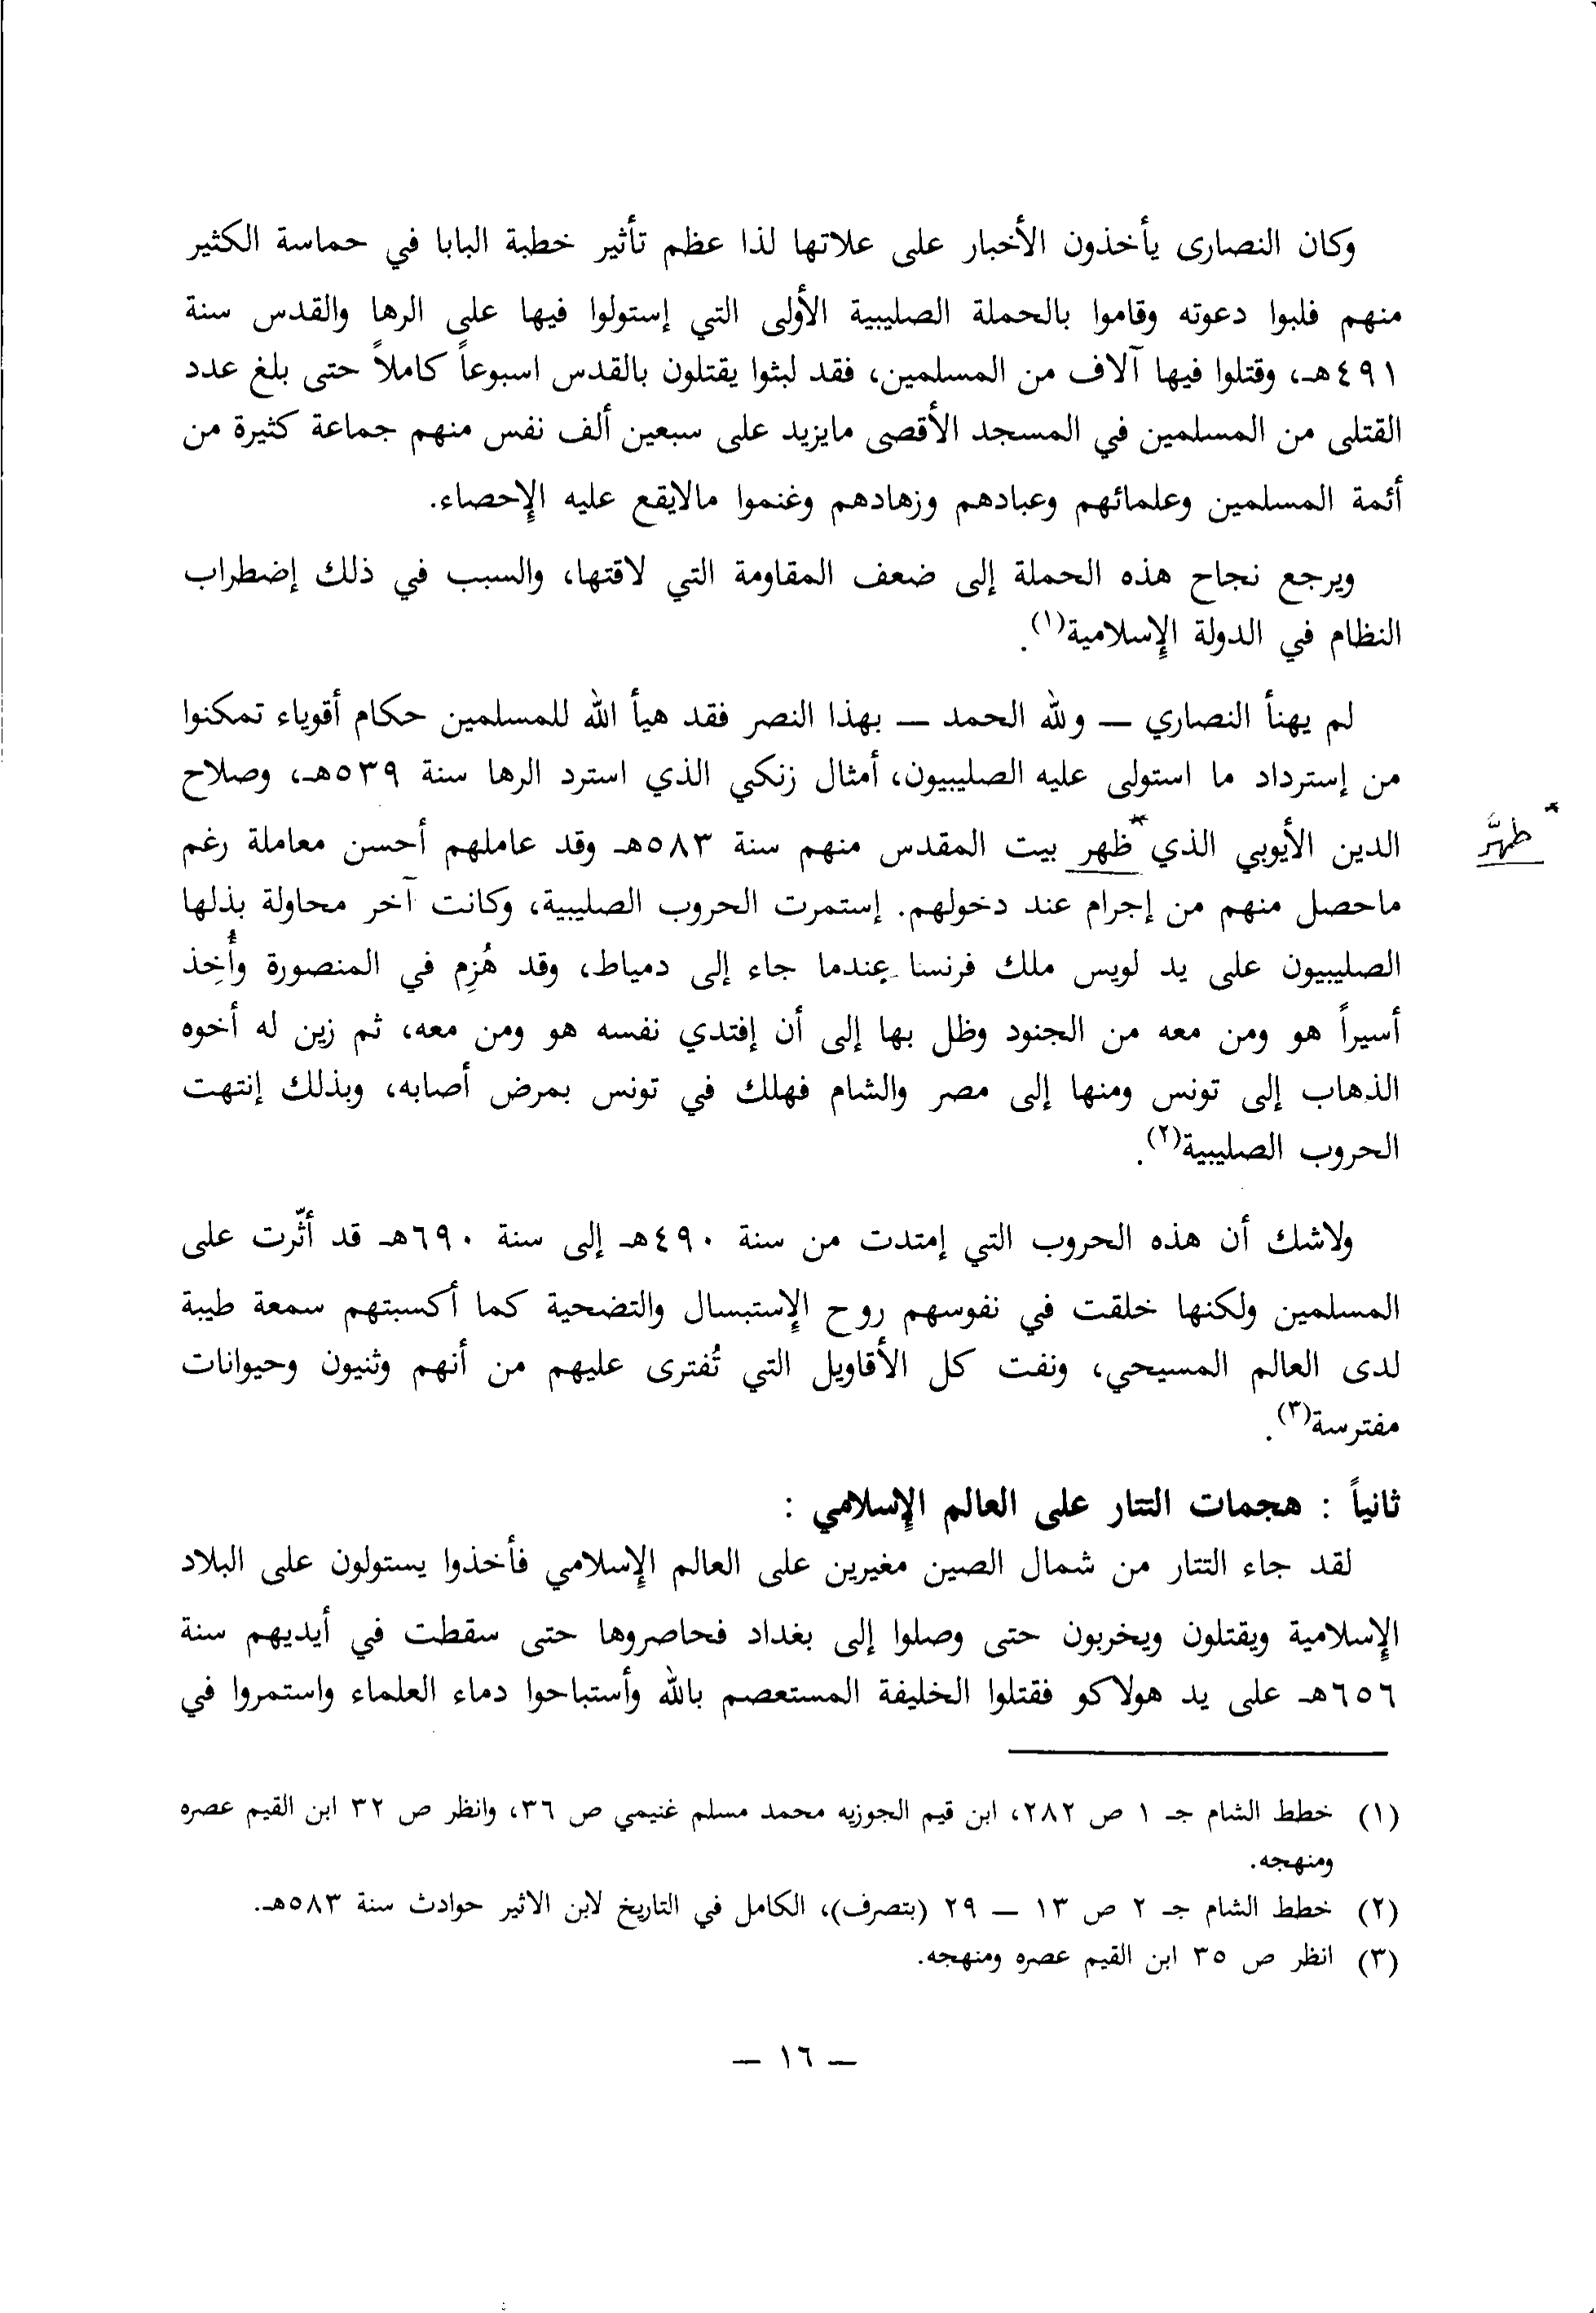 وكان النصارى يأخذون الأخبار على علاتها لذا عظم تأثير خطبة البابا في حماسة الكثير
منهم فلبوا دعوته وقاموا بالحملة الصليبية الأولى التي إستولوا فيها على الرها والقدس سنة
٤٩١هـ، وقتلوا فيها آلاف من المسلمين، فقد لبثوا يقتلون بالقدس اسبوعاً كاملاً حتى بلغ عدد
القتلى من المسلمين في المسجد الأقصى مايزيد على سبعين ألف نفس منهم جماعة كثيرة من
أئمة المسلمين وعلمائهم وعبادهم وزهادهم وغنموا مالايقع عليه الإحصاء.
ويرجع نجاح هذه الحملة إلى ضعف المقاومة التي لاقتها، والسبب في ذلك إضطراب
النظام في الدولة الإسلامية(١).
لم يهنأ النصاري — ولله الحمد — بهذا النصر فقد هيأ الله للمسلمين حكام أقوياء تمكنوا
من إسترداد ما استولى عليه الصليبيون، أمثال زنكي الذي استرد الرها سنة ٥٣٩هـ، وصلاح
الدين الأيوبي الذي *ظهر بيت المقدس منهم سنة ٥٨٣هـ وقد عاملهم أحسن معاملة رغم
* طهَّر
ماحصل منهم من إجرام عند دخولهم. إستمرت الحروب الصليبية، وكانت آخر محاولة بذلها
الصليبيون على يد لويس ملك فرنسا عندما جاء إلى دمياط، وقد هُزِم في المنصورة وأُخِذ
أسيراً هو ومن معه من الجنود وظل بها إلى أن إفتدي نفسه هو ومن معه، ثم زين له أخوه
الذهاب إلى تونس ومنها إلى مصر والشام فهلك في تونس بمرض أصابه، وبذلك إنتهت
الحروب الصليبية(٢).
ولاشك أن هذه الحروب التي إمتدت من سنة ٤٩٠هـ إلى سنة ٦٩٠هـ قد أثّرت على
المسلمين ولكنها خلقت في نفوسهم روح الإستبسال والتضحية كما أكسبتهم سمعة طيبة
لدى العالم المسيحي، ونفت كل الأقاويل التي تُفترى عليهم من أنهم وثنيون وحيوانات
مفترسة(٣).
ثانياً : هجمات التتار على العالم الإسلامي :
لقد جاء التتار من شمال الصين مغيرين على العالم الإسلامي فأخذوا يستولون على البلاد
الإسلامية ويقتلون ويخربون حتى وصلوا إلى بغداد فحاصروها حتى سقطت في أيديهم سنة
٦٥٦هـ على يد هولاكو فقتلوا الخليفة المستعصم بالله وأستباحوا دماء العلماء واستمروا في
(١) خطط الشام جـ ١ ص ٢٨٢، ابن قيم الجوزيه محمد مسلم غنيمي ص ٣٦، وانظر ص ٣٢ ابن القيم عصره
ومنهجه.
(٢) خطط الشام جـ ٢ ص ١٣ — ٢٩ (بتصرف)، الكامل في التاريخ لابن الاثير حوادث سنة ٥٨٣هـ.
(٣) انظر ص ٣٥ ابن القيم عصره ومنهجه.
— ١٦ —